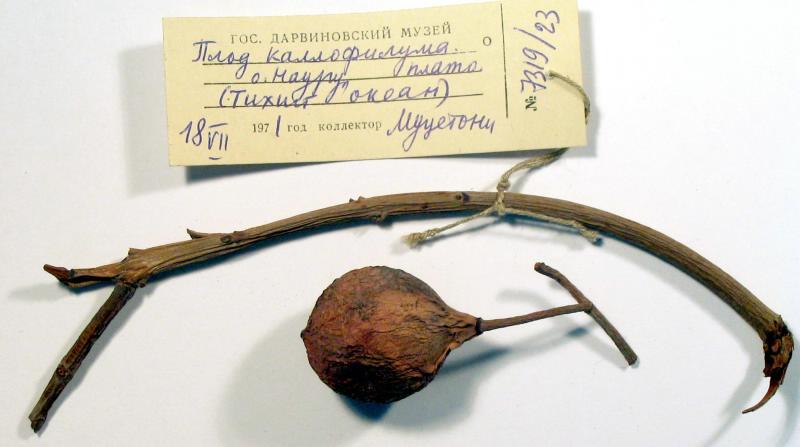 ГОС. ДАРВИНОВСКИЙ МУЗЕЙ
Плод каллофилума.
о. Науру плато
(Тихий океан)
18 VII 1971 год коллектор
№ 7319/23